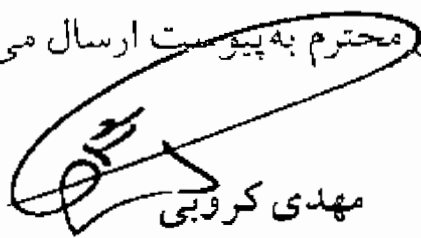 محترم به پیوست ارسال می
مهدی کروبی